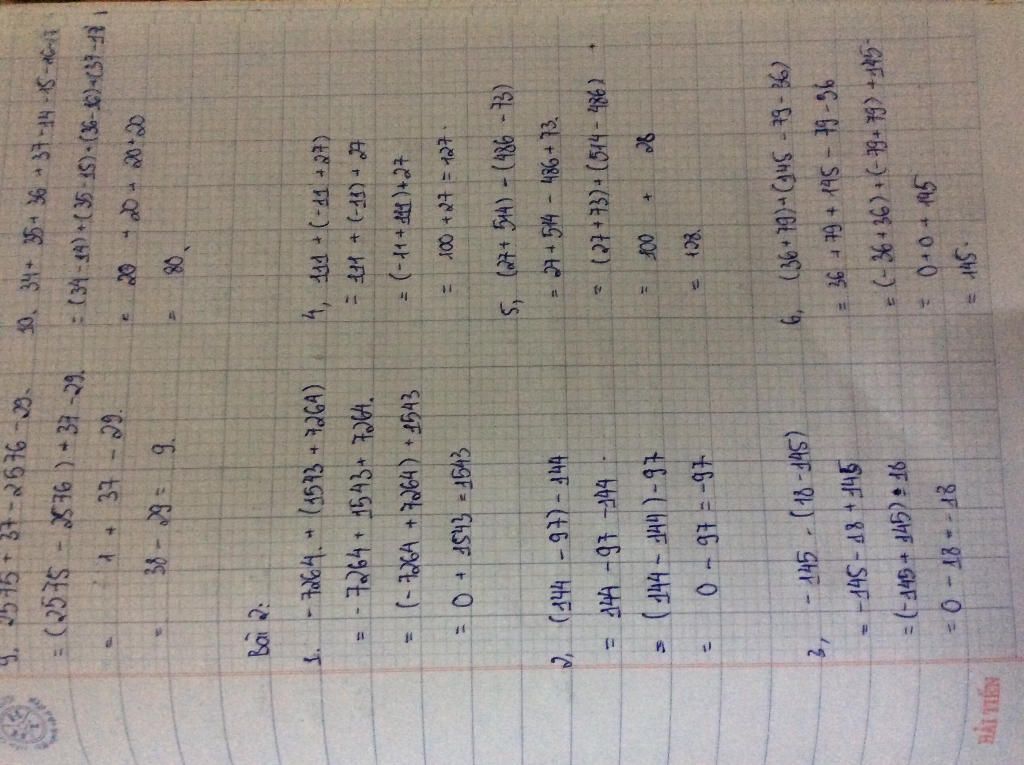 9, 2575 + 37 - 2576 - 29.
= (2575 - 2576) + 37 - 29.
= 1 + 37 - 29.
= 38 - 29 = 9.
10, 34 + 35 + 36 + 37 - 14 - 15 - 16 - 17
= (34 - 14) + (35 - 15) + (36 - 16) + (37 - 17)
= 20 + 20 + 20 + 20
= 80
Bài 2:
1. - 7264 + (1543 + 7264)
= - 7264 + 1543 + 7264.
= (- 7264 + 7264) + 1543
= 0 + 1543 = 1543
2, (144 - 97) - 144
= 144 - 97 - 144.
= (144 - 144) - 97
= 0 - 97 = -97
3, - 145 - (18 - 145)
= - 145 - 18 + 145
= (-145 + 145) 18
= 0 - 18 = - 18
4, 111 + (-11 + 27)
= 111 + (-11) + 27
= (-11 + 111) + 27
= 100 + 27 = 127.
5, (27 + 514) - (486 - 73)
= 27 + 514 - 486 + 73.
= (27 + 73) + (514 - 486)
= 100 + 28
= 128.
6, (36 + 79) + (145 - 79 - 36)
= 36 + 79 + 145 - 79 - 36
= (- 36 + 36) + (- 79 + 79) + 145.
= 0 + 0 + 145
= 145.
HẢI TIẾN